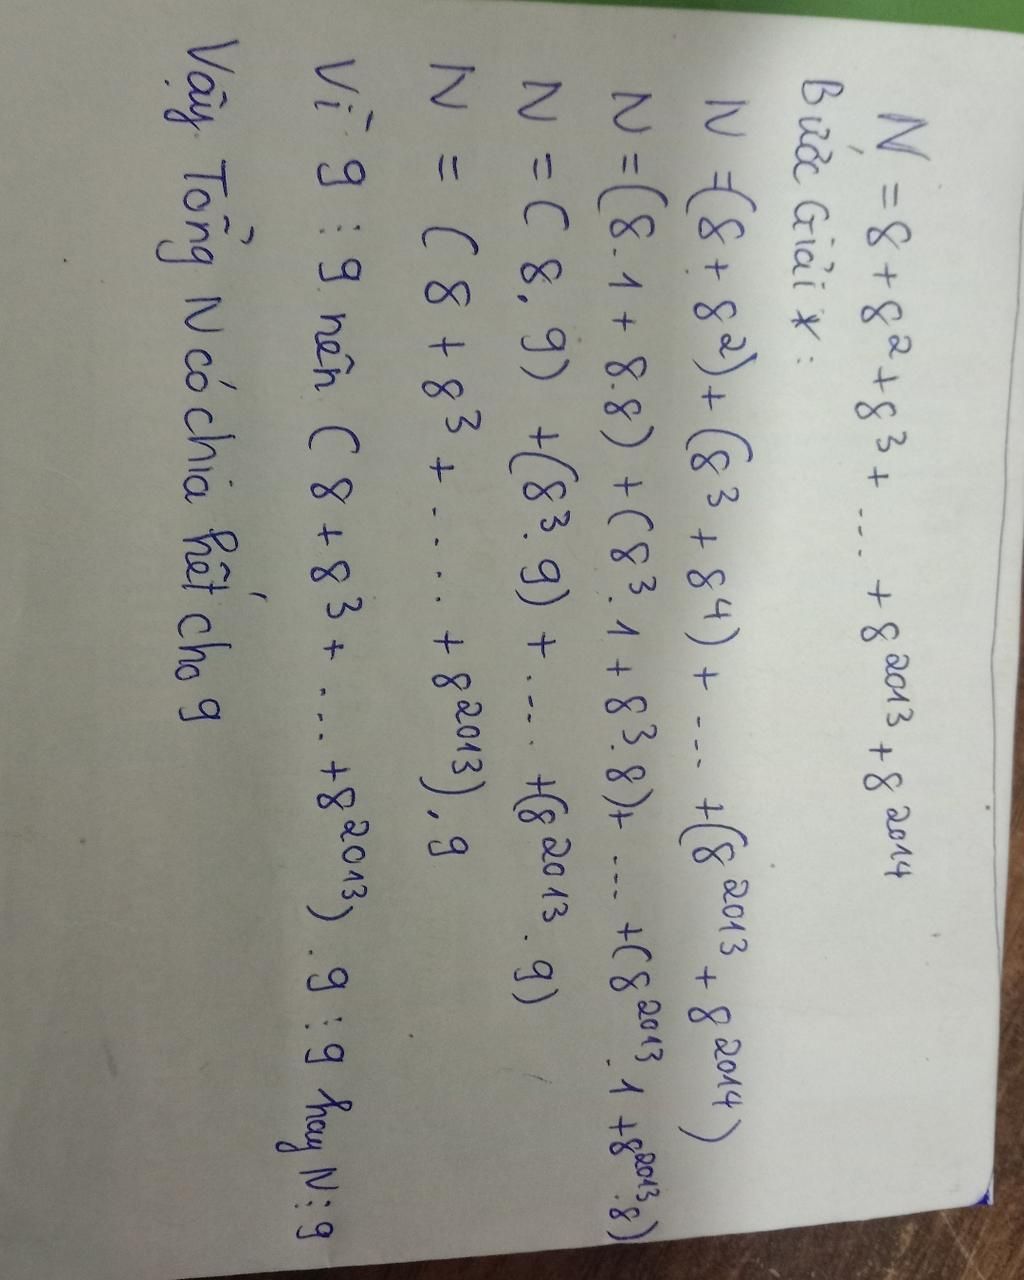 N = 8 + 8² + 8³ + ... + 8²⁰¹³ + 8²⁰¹⁴
Bước Giải * :
N = (8 + 8²) + (8³ + 8⁴) + ... + (8²⁰¹³ + 8²⁰¹⁴)
N = (8.1 + 8.8) + (8³.1 + 8³.8) + ... + (8²⁰¹³.1 + 8²⁰¹³.8)
N = (8.9) + (8³.9) + .... + (8²⁰¹³.9)
N = (8 + 8³ + .... + 8²⁰¹³).9
Vì 9 : 9 nên (8 + 8³ + ... + 8²⁰¹³).9 : 9 hay N : 9
Vậy Tổng N có chia hết cho 9